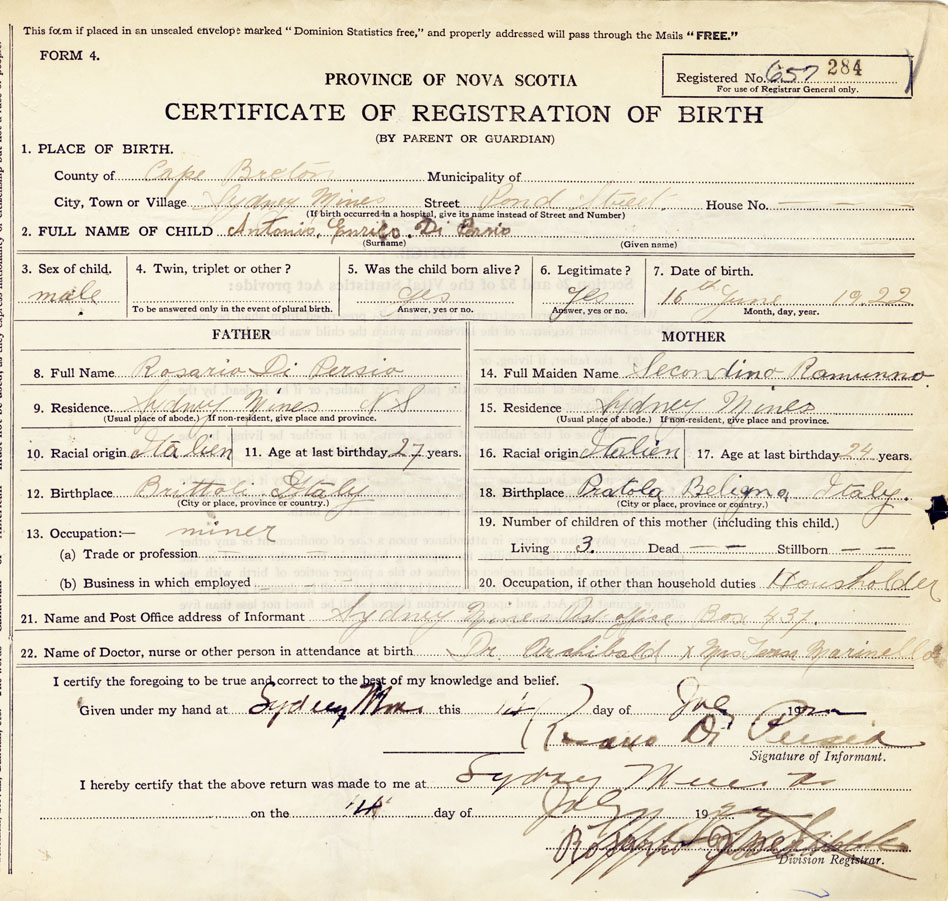 This form if placed in an unsealed envelope marked "Dominion Statistics free," and properly addressed will pass through the Mails "FREE."
FORM 4.
Registered No. 657 284
For use of Registrar General only.
PROVINCE OF NOVA SCOTIA
CERTIFICATE OF REGISTRATION OF BIRTH
(BY PARENT OR GUARDIAN)
1. PLACE OF BIRTH.
County of Cape Breton Municipality of
City, Town or Village Sydney Mines Street Pond Street House No. — — —
(If birth occurred in a hospital, give its name instead of Street and Number)
2. FULL NAME OF CHILD Antonio, Enrico. Di Persio
(Surname) (Given name)
3. Sex of child. 4. Twin, triplet or other? 5. Was the child born alive? 6. Legitimate? 7. Date of birth.
male yes yes 16th June 1922
To be answered only in the event of plural birth. Answer, yes or no. Answer, yes or no. Month, day, year.
FATHER MOTHER
8. Full Name Rosario Di Persio 14. Full Maiden Name Secondino Ramunno
9. Residence. Sydney Mines N S 15. Residence Sydney Mines
(Usual place of abode.) If non-resident, give place and province. (Usual place of abode.) If non-resident, give place and province.
10. Racial origin Italien 11. Age at last birthday 27 years. 16. Racial origin Italien 17. Age at last birthday 24 years.
12. Birthplace Brittoli Italy 18. Birthplace Pratola Beligna, Italy.
(City or place, province or country.) (City or place, province or country.)
13. Occupation:— miner 19. Number of children of this mother (including this child.)
(a) Trade or profession — — Living 3. Dead — — Stillborn — —
(b) Business in which employed — — — 20. Occupation, if other than household duties Housholder
21. Name and Post Office address of Informant Sydney Mines Post office Box 437.
22. Name of Doctor, nurse or other person in attendance at birth Dr. Archibald x Mrs Teresa Marinella
I certify the foregoing to be true and correct to the best of my knowledge and belief.
Given under my hand at Sydney Mines this 14 day of July 1922
Rosario Di Persio
Signature of Informant.
I hereby certify that the above return was made to me at Sydney Mines
on the "14" day of July 1922
Division Registrar.